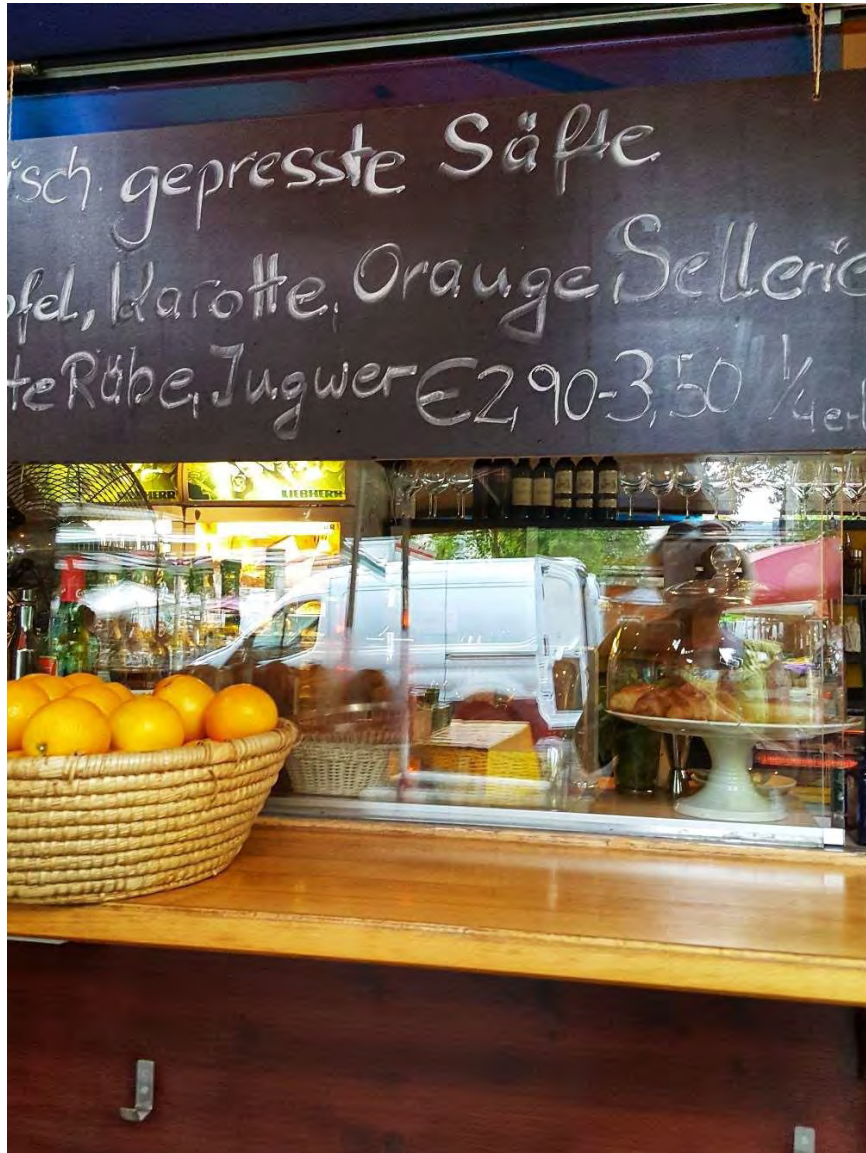 isch gepresste Säfte
pfel, Karotte, Orange Sellerie
te Rübe, Ingwer €2,90-3,50 1/4erl
LIEBHERR